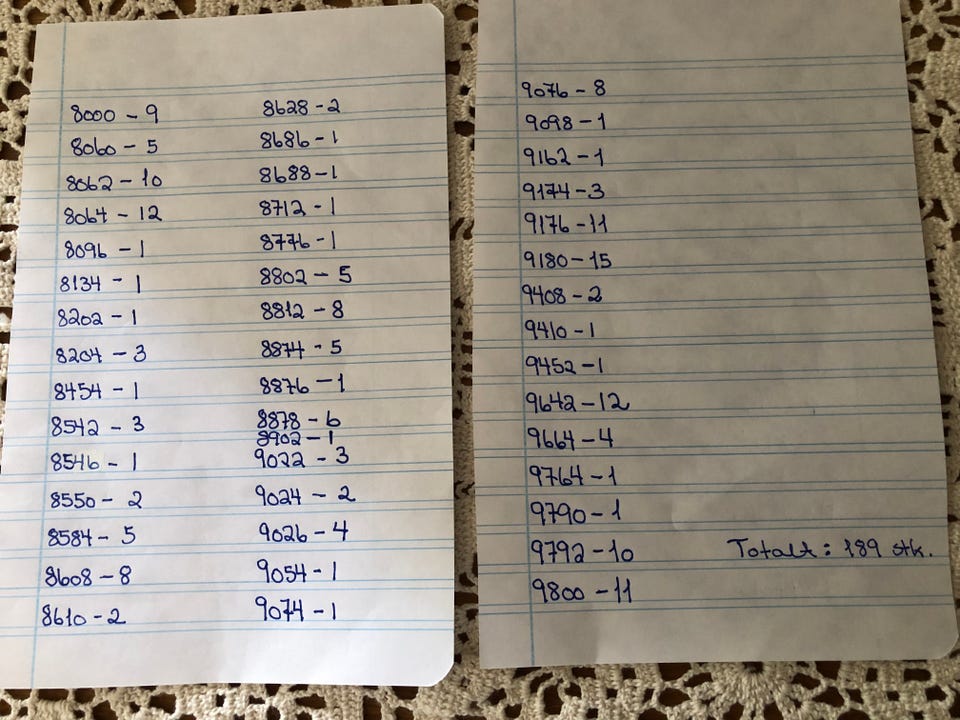 8000 - 9
8060 - 5
8062 - 10
8064 - 12
8096 - 1
8134 - 1
8202 - 1
8204 - 3
8454 - 1
8542 - 3
8546 - 1
8550 - 2
8584 - 5
8608 - 8
8610 - 2
8628 - 2
8686 - 1
8688 - 1
8712 - 1
8776 - 1
8802 - 5
8812 - 8
8874 - 5
8876 - 1
8878 - 6
8902 - 1
9022 - 3
9024 - 2
9026 - 4
9054 - 1
9074 - 1
9076 - 8
9098 - 1
9162 - 1
9174 - 3
9176 - 11
9180 - 15
9408 - 2
9410 - 1
9452 - 1
9642 - 12
9664 - 4
9764 - 1
9790 - 1
9792 - 10
9800 - 11
Totalt : 189 stk.